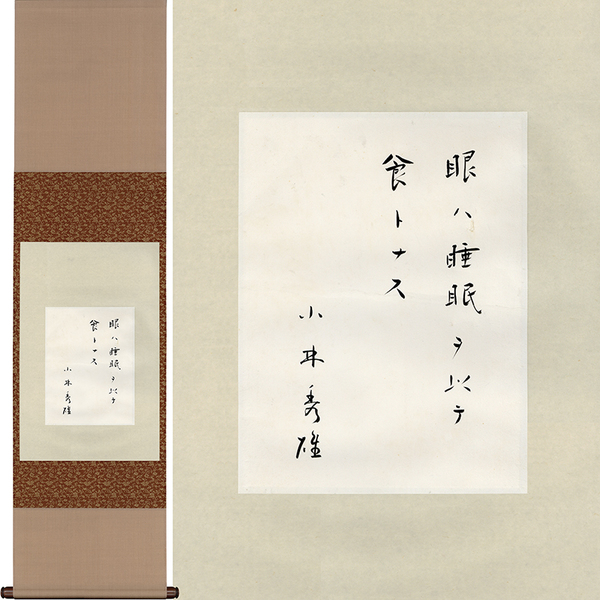 眼ハ睡眠ヲ以テ
食トナス
小林秀雄